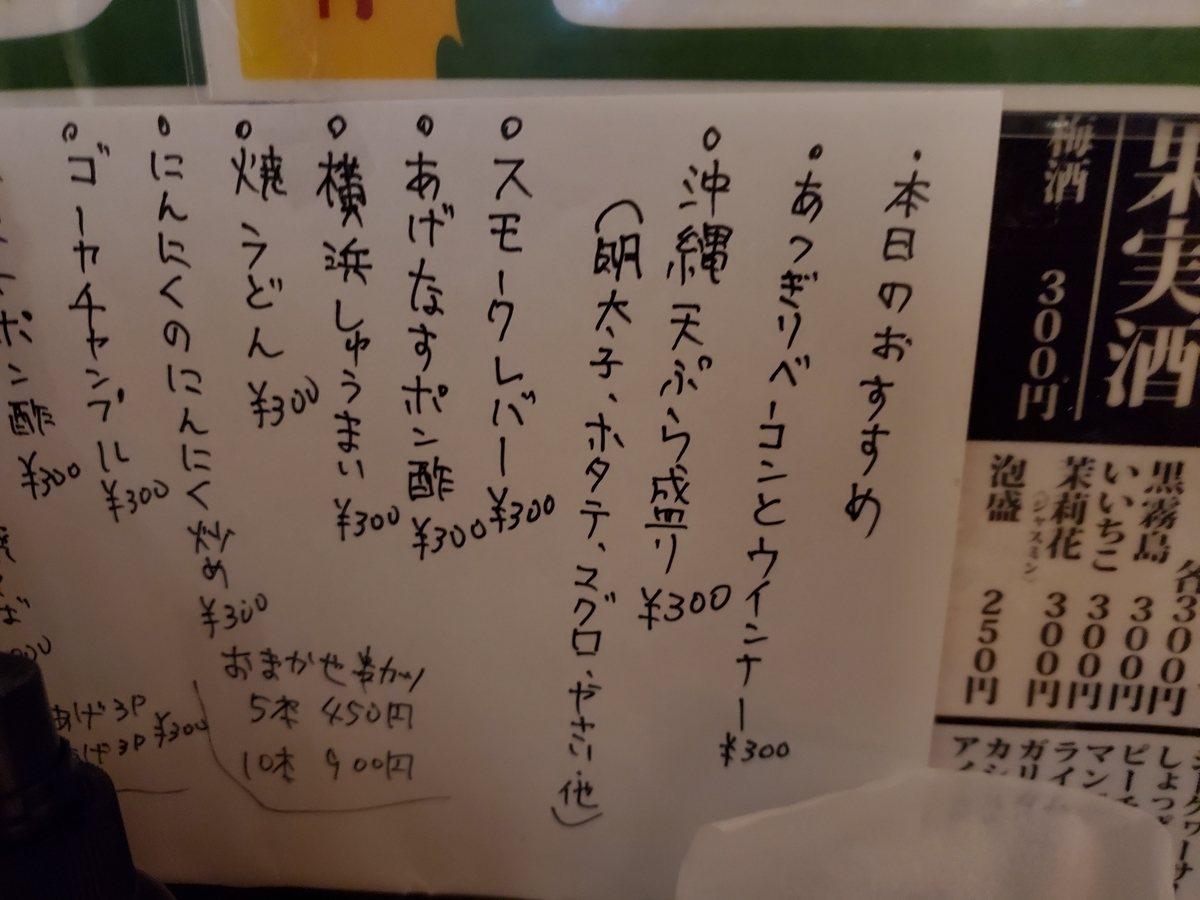 ・本日のおすすめ
・あつぎりベーコンとウインナー ¥300
○沖縄天ぷら盛り ¥300
（明太子、ホタテ、スグロ、やさい、他）
○スモークレバー ¥300
○あげなすポン酢 ¥300
○横浜しゅうまい ¥300
○焼うどん ¥300
○にんにくのにんにく炒め ¥300
○ゴーヤチャンプル ¥300
ポン酢 ¥300
おまかせ串カツ
5本 450円
10本 900円
あげ3P
¥300
果実酒
梅酒 300円
各300円
黒霧島 300円
いいちこ 300円
茉莉花 300円
（ジャスミン）
泡盛 250円